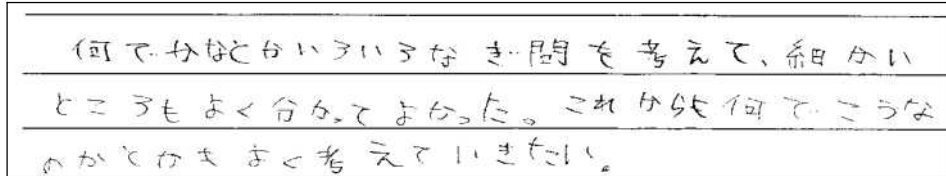 何でかなとかいろいろなぎ問を考えて、細かい
ところもよく分かってよかった。これからも何でこうな
のかとかをよく考えていきたい。